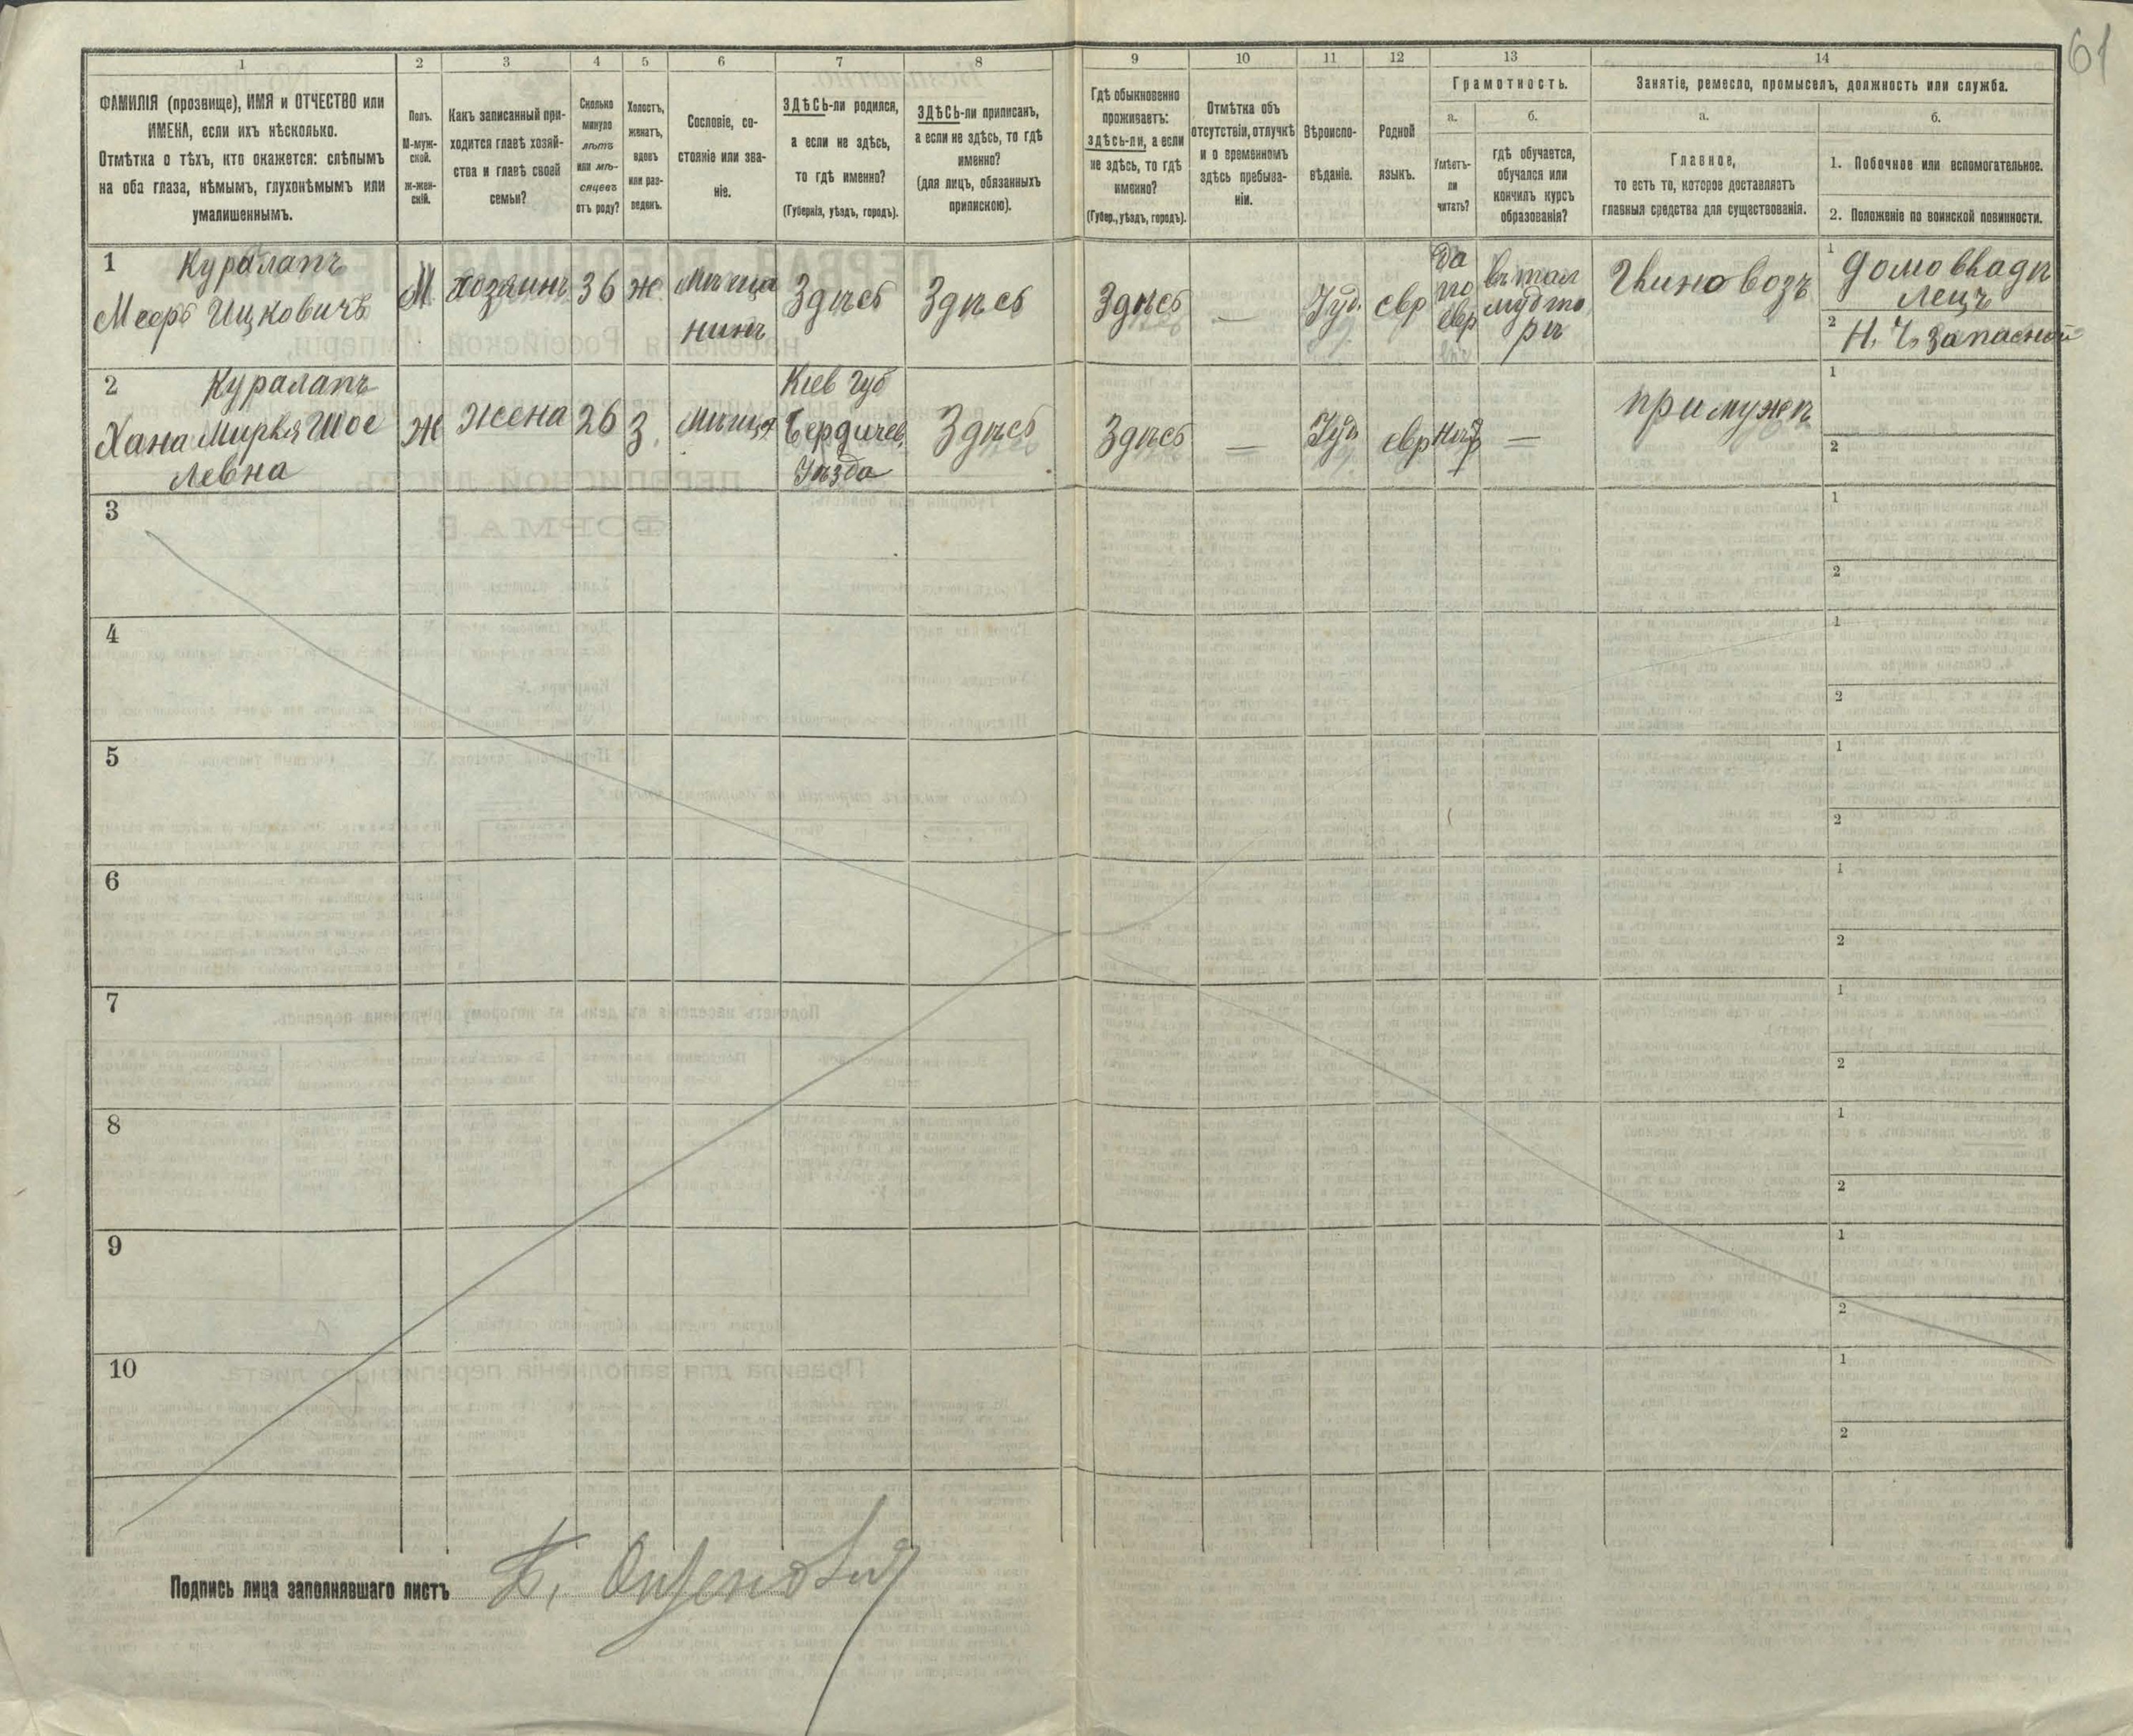 61
1
2
3
4
5
6
7
8
9
10
11
12
13
14
ФАМИЛІЯ (прозвище), ИМЯ и ОТЧЕСТВО или
ИМЕНА, если ихъ нѣсколько.
Отмѣтка о тѣхъ, кто окажется: слѣпымъ
на оба глаза, нѣмымъ, глухонѣмымъ или
умалишеннымъ.
Полъ.
М-муж-
ской.
Ж-жен-
скій.
Какъ записанный при-
ходится главѣ хозяй-
ства и главѣ своей
семьи?
Сколько
минуло
лѣтъ
или мѣ-
сяцевъ
отъ роду?
Холостъ,
женатъ,
вдовъ
или раз-
веденъ.
Сословіе, со-
стояніе или зва-
ніе.
ЗДѢСЬ-ли родился,
а если не здѣсь,
то гдѣ именно?
(Губернія, уѣздъ, городъ).
ЗДѢСЬ-ли приписанъ,
а если не здѣсь, то гдѣ
именно?
(для лицъ, обязанныхъ
припискою).
Гдѣ обыкновенно
проживаетъ:
здѣсь-ли, а если
не здѣсь, то гдѣ
именно?
(Губер., уѣздъ, городъ).
Отмѣтка объ
отсутствіи, отлучкѣ
и о временномъ
здѣсь пребыва-
ніи.
Вѣроиспо-
вѣданіе.
Родной
языкъ.
Грамотность.
а.
Умѣетъ-
ли
читать?
б.
гдѣ обучается,
обучался или
кончилъ курсъ
образованія?
Занятіе, ремесло, промыселъ, должность или служба.
а.
Главное,
то есть то, которое доставляетъ
главныя средства для существованія.
б.
1. Побочное или вспомогательное.
2. Положеніе по воинской повинности.
1
Куралапъ
Мееръ Ицковичъ
М
хозяинъ
36
ж
мѣща
нинъ
Здѣсь
Здѣсь
Здѣсь
—
Іуд.
евр
да
по
евр
въ тал
мудто
рѣ
Гвиновозъ
1
домовладѣ
лецъ
2
Н. Ч. запасной
2
Куралапъ
Хана Мирля Шое
левна
Ж
жена
26
З.
мѣща
Кіев губ
Бердичев.
Уѣзда
Здѣсь
Здѣсь
—
Іуд
евр
нѣт
—
при мужѣ
1
2
3
1
2
4
1
2
5
1
2
6
1
2
7
1
2
8
1
2
9
1
2
10
1
2
Подпись лица заполнявшаго листъ